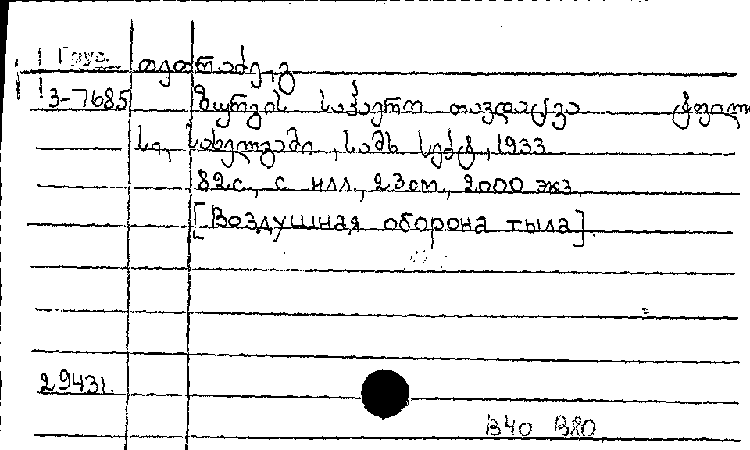 Груз.
3-7685 ზურგის საჰაერო თავდაცვა ტფილი
სი, სახელგამი, სამხ სექტ, 1933
82с, с илл, 23 cm, 2000 экз
[Воздушная оборона тыла].
29431.
B40 B80